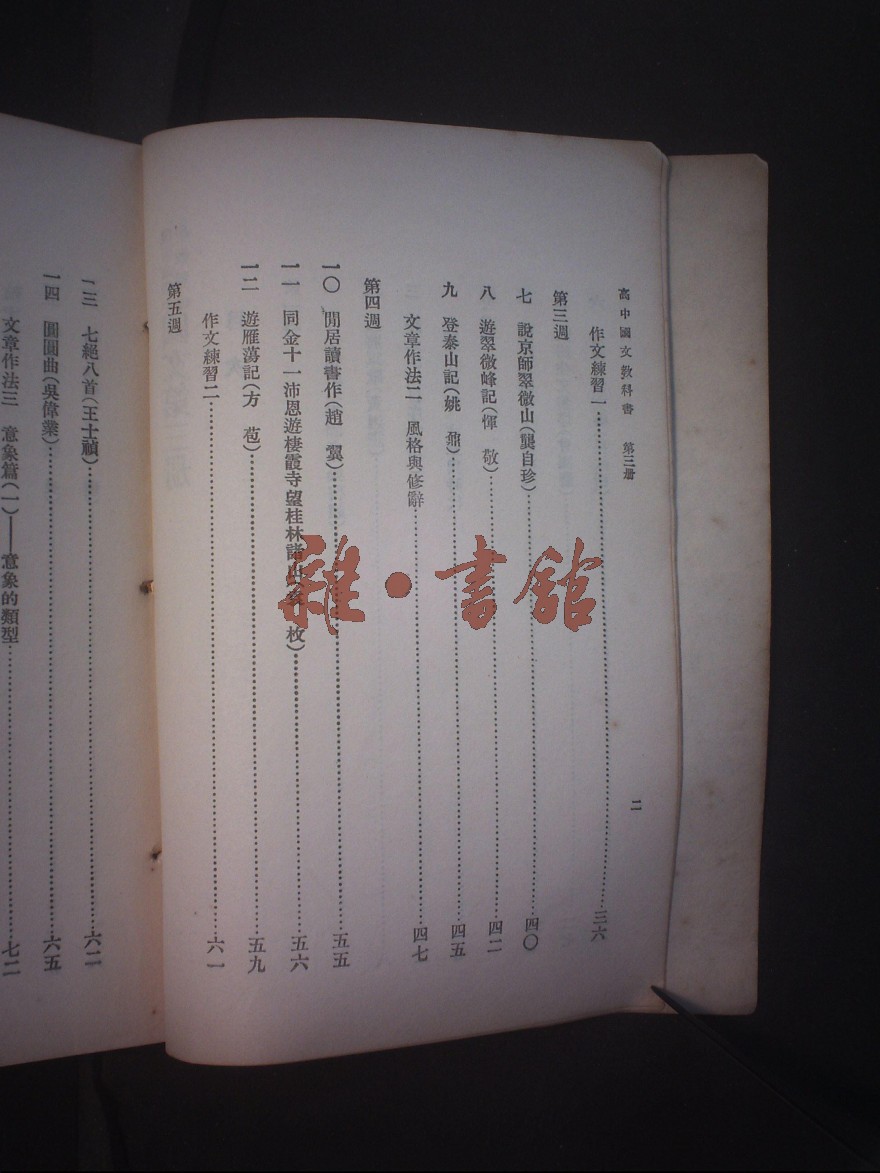 高中國文教科書　第三册
二
作文練習一……三六
第三週
七　說京師翠微山(龔自珍)……四〇
八　遊翠微峰記(惲　敬)……四二
九　登泰山記(姚　鼐)……四五
文章作法二　風格與修辭……四七
第四週
一〇　閒居讀書作(趙　翼)……五五
一一　同金十一沛恩遊棲霞寺望桂林諸山(袁　枚)……五六
一二　遊雁蕩記(方　苞)……五九
作文練習二……六一
第五週
一三　七絕八首(王士禎)……六二
一四　圓圓曲(吳偉業)……六五
文章作法三　意象篇(一)——意象的類型……七二
雜·書館